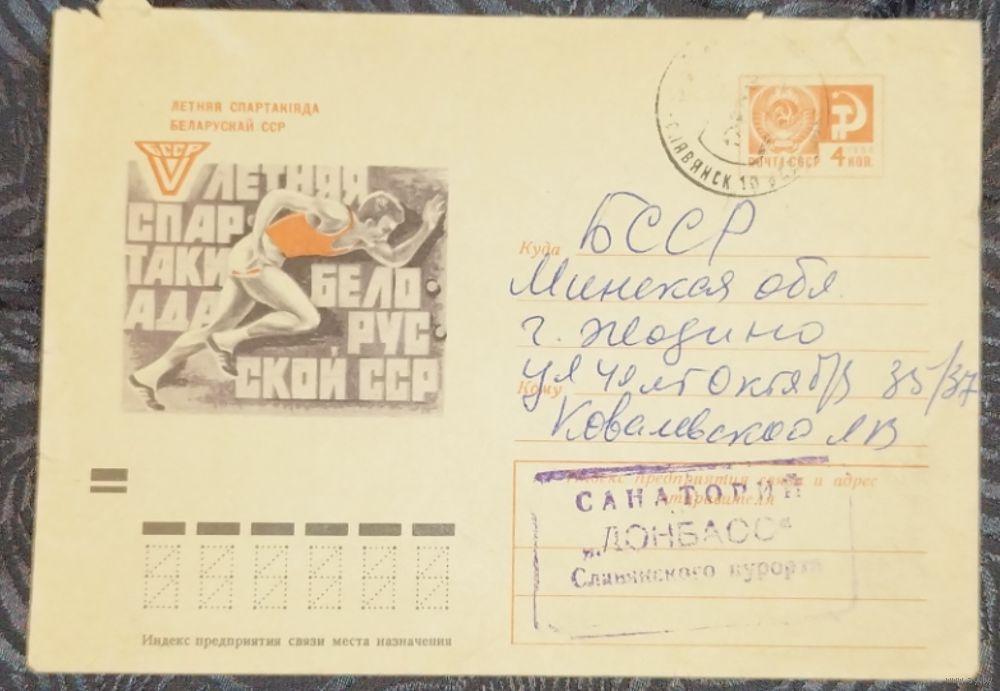 ЛЕТНЯЯ СПАРТАКІЯДА
БЕЛАРУСКАЙ ССР
БССР
ЛЕТНЯЯ
СПАР
ТАКИ
АДА
БЕЛО
РУС
СКОЙ ССР
СЛАВЯНСК 10
ПОЧТА СССР
4 КОП.
Куда БССР
Минская обл.
г. Жодино
Кому ул 40 лет Октября 35/37
Ковалевской ЛВ
Индекс предприятия связи и адрес
отправителя
САНАТОРИЙ
„ДОНБАСС“
Славянского курорта
Индекс предприятия связи места назначения